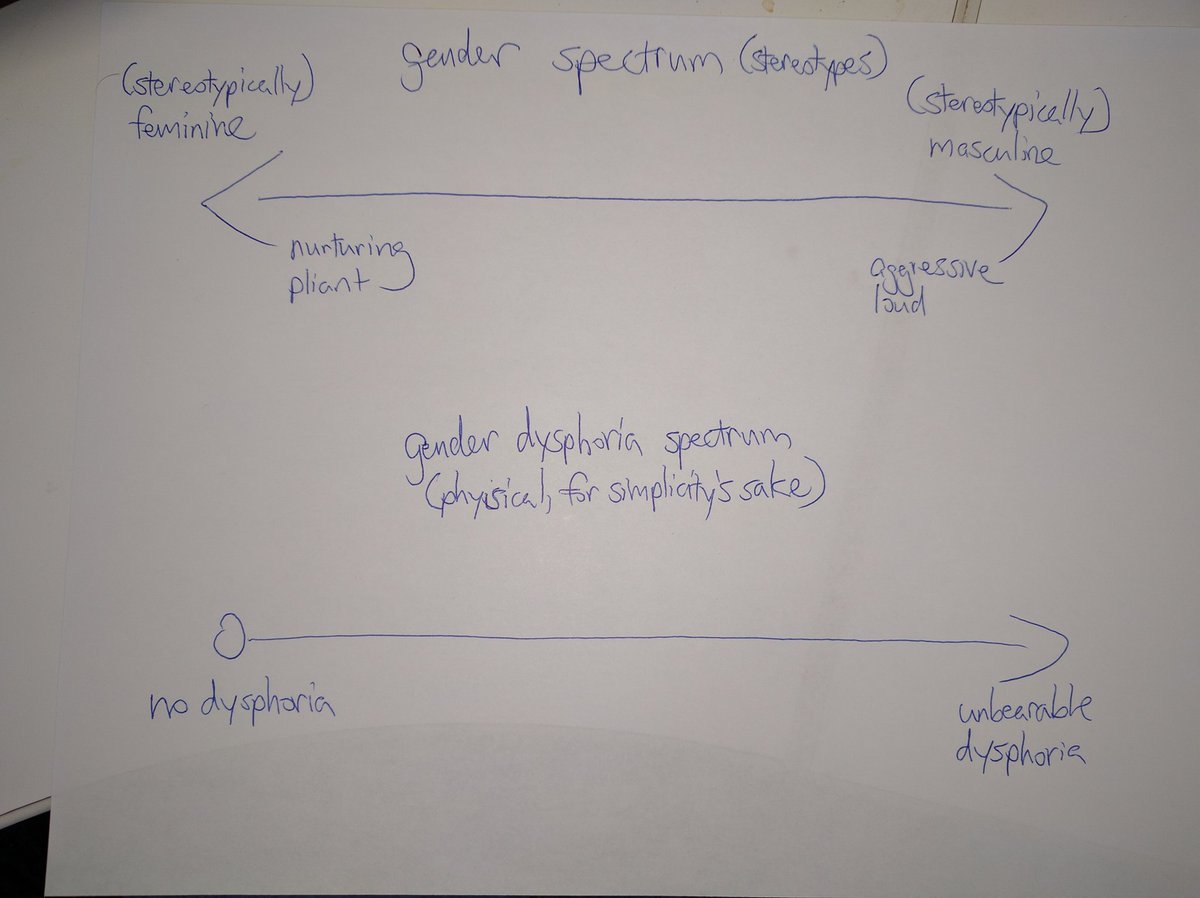 gender spectrum (stereotypes)
(stereotypically)
feminine
(stereotypically)
masculine
nurturing
pliant
aggressive
loud
gender dysphoria spectrum
(physical, for simplicity's sake)
no dysphoria
unbearable
dysphoria